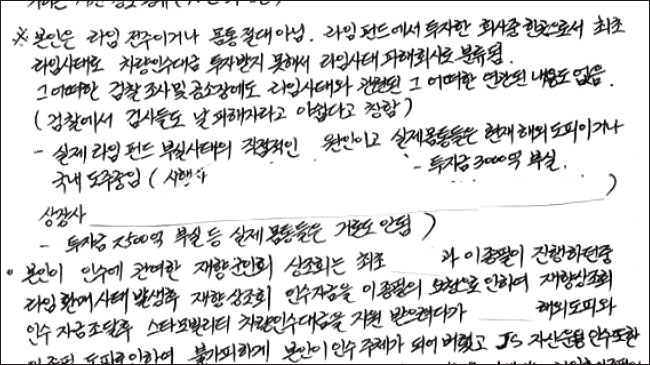 ※ 본인은 라임 전주이거나 몸통 절대 아님. 라임 펀드에서 투자한 회사중 한곳으로서 최초
라임사태로 차량인수대금 투자받지 못해서 라임사태 피해회사로 분류됨.
그 어떠한 검찰조사 및 공소장에도 라임사태와 관련된 그 어떠한 연관된 내용도 없음.
(검찰에서 검사들도 날 피해자라고 아쉽다고 칭함)
- 실제 라임 펀드 부실사태의 직접적인 원인이고 실제몸통들은 현재 해외도피이거나
국내 도주중임 ( 시행사 - 투자금 3000억 부실.
)
상장사
- 투자금 2500억 부실 등 실제 몸통들은 거론도 안됨 )
• 본인이 인수에 관여한 재향군인회 상조회는 최초 과 이종필이 진행하던중
라임 환매사태 발생후 재향상조회 인수자금을 이종필의 요청으로 인하여 재향상조회
인수 자금조달후 스타모빌리티 차량인수대금을 지원 받으려다가 해외도피와
이종필 도피로 인하여 불가피하게 본인이 인수주체가 되어 버렸고 JS 자산운용 인수또한